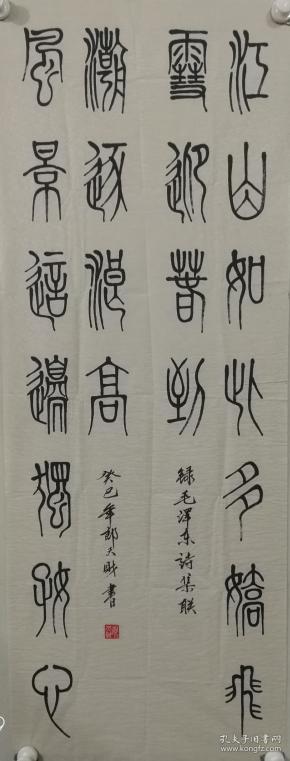 江山如此多嬌飛
雪迎春到
録毛澤東詩集联
風景這邊獨好心
潮逐浪高
癸巳年郎天財書
孔夫子旧书网